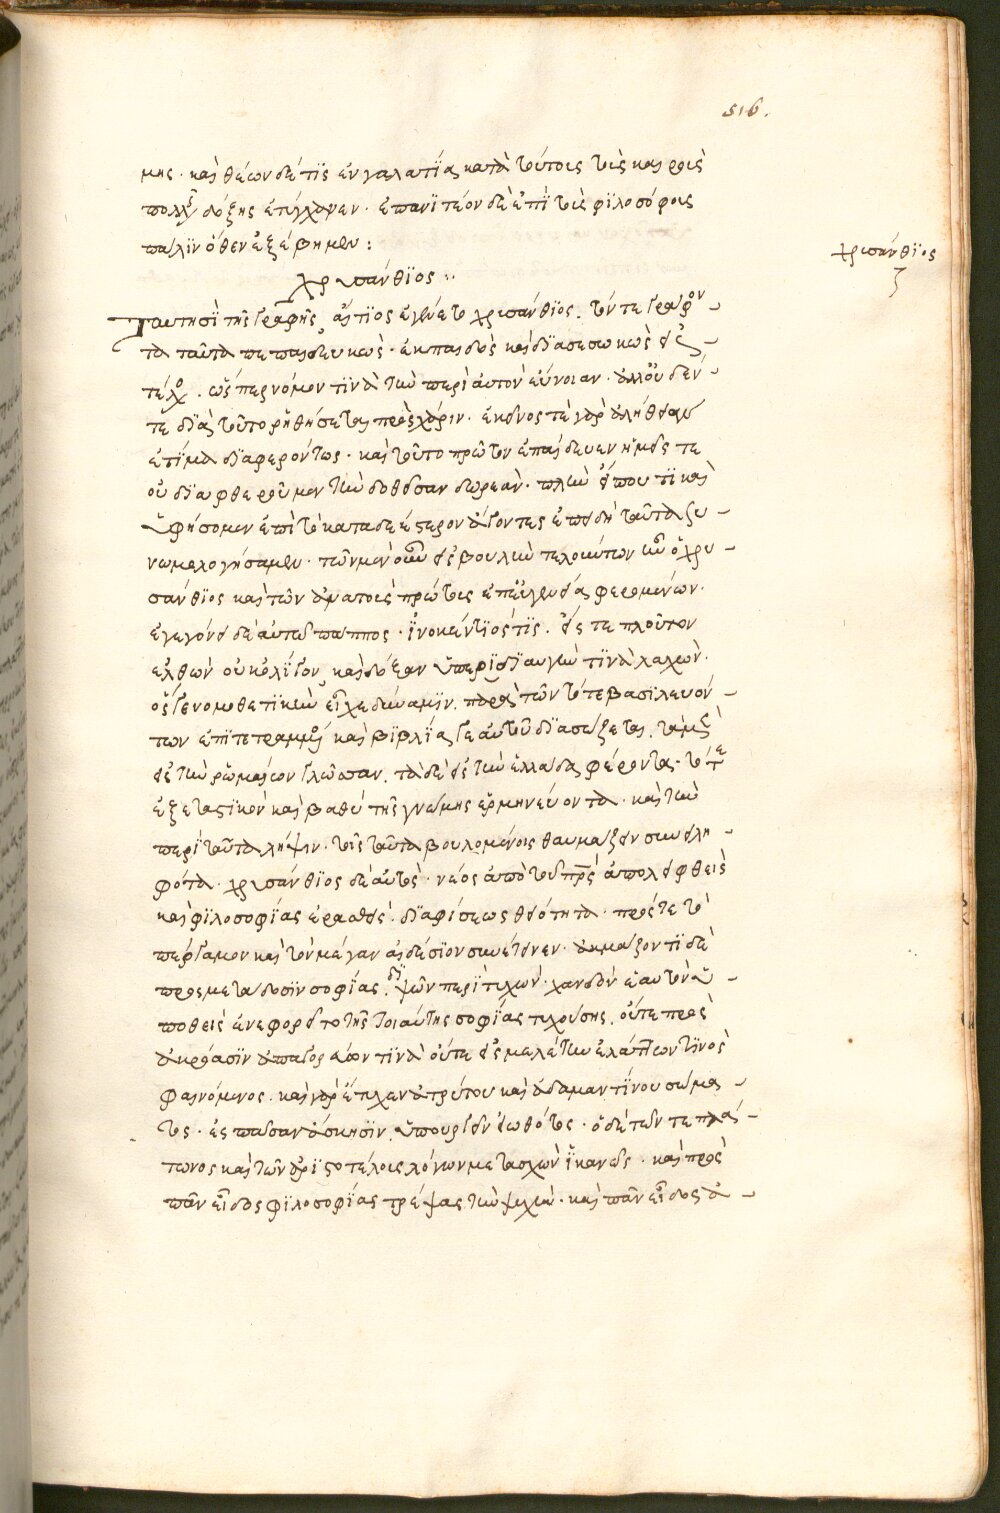 516.
μης· καὶ θέων δέ τϊς ἐν γαλατίᾳ κατὰ τούτοις τοὺς καιροὺς
πολλῆς δόξης ἐτύγχανεν· ἐπανϊτέον δὲ ἐπὶ τοὺς φϊλοσόφοις
πάλϊν ὅθεν ἐξέβημεν :
χρυσάνθϊος
χρυσάνθϊος ··
Ταυτησὶ τῆς γραφῆς αἴτϊος ἐγένετο χρυσάνθϊος. τόν τε γράφον-
τα ταῦτα πεπαιδευκὼς· ἐκ παιδὸς καὶ δϊασεσωκὼς εἰς
τέλος. ὥσπερ νόμον τϊνὰ τὴν περὶ αὐτὸν εὔνοιαν· ἀλλ' οὐδέν
τε δϊὰ τοῦτο ῥηθήσεται πρὸς χάριν· ἐκεῖνός τε γὰρ ἀλήθειαν
ἐτίμα δϊαφερόντως· καὶ τοῦτο πρῶτον ἐπαίδευεν ἡμεῖς τε
οὐ δϊαφθεροῦμεν τὴν δοθεῖσαν δωρεάν· πλὴν εἴ που τϊ καὶ
ὑφήσομεν ἐπὶ τὸ καταδεέστερον ἄγοντες ἐπειδὴ ταῦτα ξυ-
νωμολογήσαμεν· τῶν μὲν οὖν εἰς βουλὴν τελούντων ἦν ὁ χρυ-
σάνθϊος καὶ τῶν ἀνὰ τοὺς πρώτοις ἐπ' εὐγενείᾳ φερομένων·
ἐγεγόνει δὲ αὐτῷ πάππος· ἰνοκέντϊός τϊς. εἴς τε πλοῦτον
ἐλθὼν οὐκ ὀλίγον, καὶ δόξαν ὑπὲρ ἰδϊώτην τϊνὰ λαχὼν·
ὅς γε νομοθετϊκὴν εἶχε δύναμϊν, παρὰ τῶν τότε βασϊλευόν-
των ἐπϊτετραμμένος καὶ βϊβλία γε αὐτοῦ δϊασώζεται, τὰ μὲν
εἰς τὴν ῥωμαίων γλῶσσαν, τὰ δὲ εἰς τὴν ἑλλάδα φέροντα· τό τε
ἐξεταστϊκὸν καὶ βαθὺ τῆς γνώμης ἑρμηνεύοντα· καὶ τὴν
περὶ ταῦτα λήψιν· τοῖς ταῦτα βουλομένοις θαυμάζειν συνειλη-
φότα· χρυσάνθϊος δὲ αὐτὸς· νέος ἀπὸ τοῦ πρς ἀπολειφθεὶς
καὶ φϊλοσοφίας ἐρασθεὶς· δϊὰ φύσεως θειότητα· πρός τε τὸ
πέργαμον καὶ τὸν μέγαν αἰδέσϊον συνέτεινεν· ἀκμάζοντϊ δὲ
πρὸς μετάδοσϊν σοφίας· δϊψῶν περϊτυχὼν· χανδὸν ἑαυτὸν ὑ-
ποθεὶς ἀνεφορεῖτο τῆς τοιαύτης σοφίας τυχούσης, οὔτε πρὸς
ἀκρόασϊν ἀπαγορεύων τϊνὰ οὔτε εἰς μελέτην ἐλάττων τϊνὸς
φαινόμενος· καὶ γὰρ ἔτυχεν ἀτρύτου καὶ ἀδαμαντίνου σώμα-
τος· ἐς πᾶσαν ἄσκησϊν, ὑπουργεῖν εἰωθότος· ὁ δὲ τῶν τε πλά-
τωνος καὶ τῶν ἀρϊστοτέλους λόγων μετασχὼν ἱκανῶς· καὶ πρὸς
πᾶν εἶδος φϊλοσοφίας τρέψας τὴν ψυχὴν· καὶ πᾶν εἶδος ἀ-